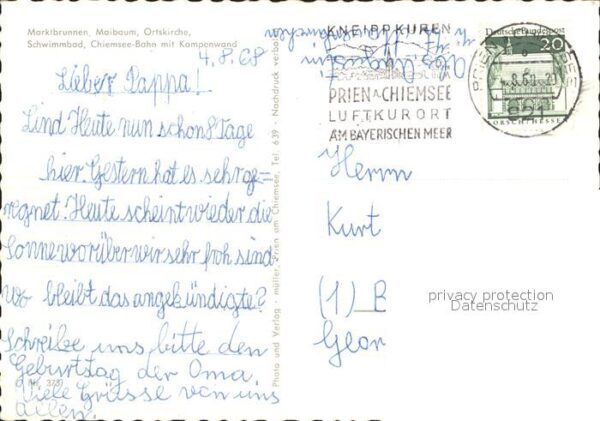 Marktbrunnen, Maibaum, Ortskirche,
Schwimmbad, Chiemsee-Bahn mit Kampenwand
4.8.68
Lieber Pappa!
Sind Heute nun schon 8 Tage
hier. Gestern hat es sehr ge=
regnet. Heute scheint wieder die
Sonne worüber wir sehr froh sind
wo bleibt das angekündigte?
Schreibe uns bitte den
Geburtstag der Oma.
Viele Grüsse von uns
allen.
Nr. 373
Photo und Verlag - müller, Prien am Chiemsee, Tel. 639 - Nachdruck verbo
KNEIPPKUREN
PRIEN A. CHIEMSEE
LUFTKURORT
AM BAYERISCHEN MEER
Deutsche Bundespost
20
LORSCH/HESSEN
821
Herrn
Kurt
(1) B
Geor
privacy protection
Datenschutz